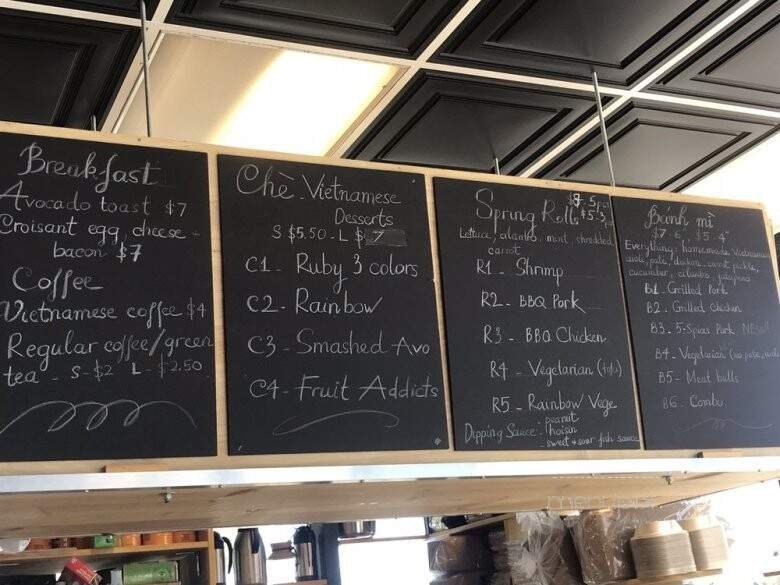 Breakfast
Avocado toast $7
Croisant egg, cheese -
bacon $7
Coffee
Vietnamese coffee $4
Regular coffee/green
tea - S-$2 L-$2.50
Chè - Vietnamese
Desserts
S $5.50 - L $7
C1 - Ruby 3 colors
C2 - Rainbow
C3 - Smashed Avo
C4 - Fruit Addicts
Spring Rolls
Lettuce, cilantro, mint, shredded
carrot
R1 - Shrimp
R2 - BBQ Pork
R3 - BBQ Chicken
R4 - Vegetarian (tofu)
R5 - Rainbow Vege
Dipping Sauce: - peanut
- hoisin
- sweet & sour fish sauce
Bánh mì
$7 - 6" $5 - 4"
Everything: homemade Vietnamese
aioli, pate, daikon carrot pickle,
cucumber, cilantro, jalapeno
B1 - Grilled Pork
B2 - Grilled Chicken
B3 - 5-Spias Pork
B4 - Vegetarian (no pate,
B5 - Meat balls
B6 - Combo